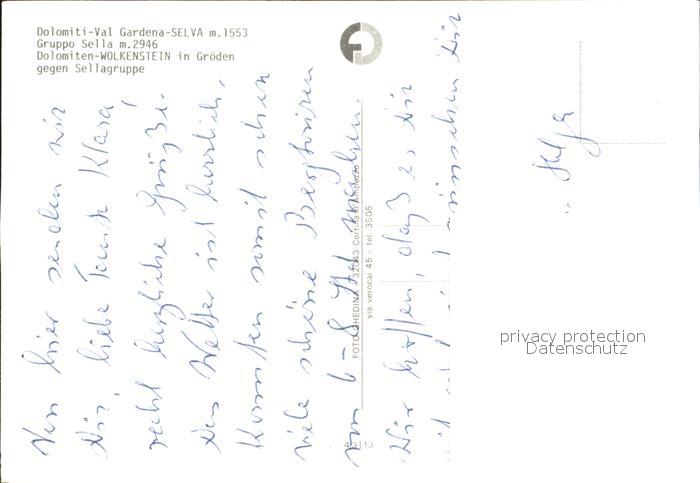 Dolomiti-Val Gardena-SELVA m.1553
Gruppo Sella m.2946
Dolomiten-WOLKENSTEIN in Gröden
gegen Sellagruppe
Von hier senden wir
Dir, liebe Tante Klara
recht herzliche Grüße.
Das Wetter ist herrlich.
Konnten somit schon
viele schöne Bergtouren
von 6-8 Std machen.
Wir hoffen, daß es Dir
wünschen Dir
Helga
FOTO GHEDINA - 32043 Cortina d'Ampezzo
via verocai 45 - tel. 3505
privacy protection
Datenschutz